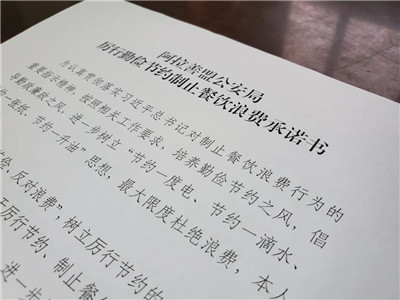 阿拉善盟公安局
厉行勤俭节约制止餐饮浪费承诺书
为认真贯彻落实习近平总书记对制止餐饮浪费行为的
重要指示精神，按照相关工作要求，培养勤俭节约之风，倡
导勤政廉政之风，进一步树立“节约一度电、节约一滴水、
一张纸、节约一升油”思想，最大限度杜绝浪费，本人
反对浪费”，树立厉行节约的
厉行节约、制止餐
进一步